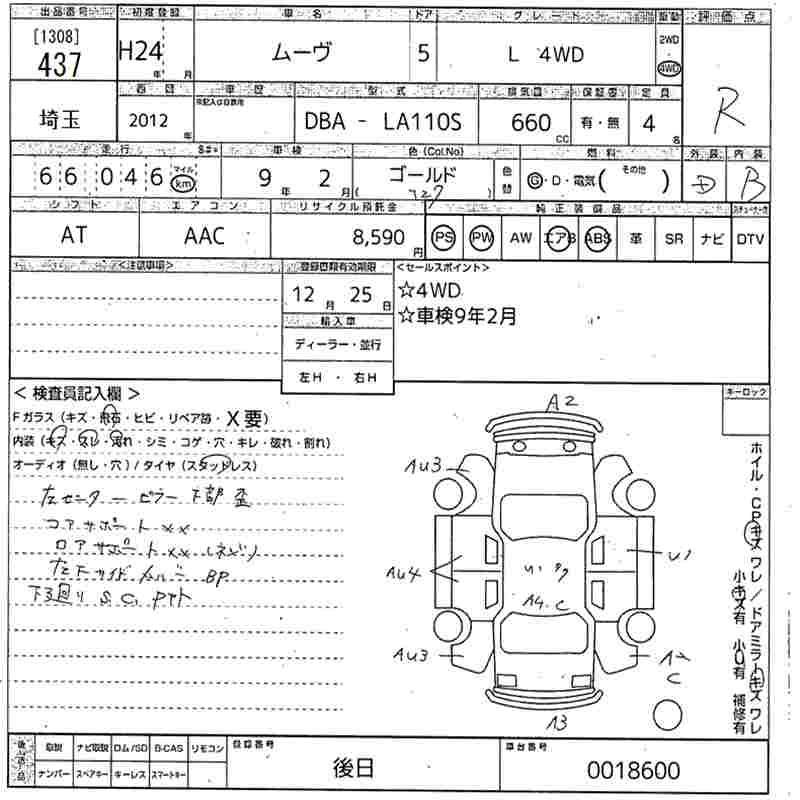 出品番号 初度登録 車名 ドア グレード 駆動 評価点
[1308]
437 H24 年 月 ムーヴ 5 L 4WD 2WD 4WD R
西暦 車歴 型式 排気量 保証書 定員
埼玉 2012 年 未記入は自家用 DBA - LA110S 660 cc 有・無 4 名
走行 車検 色 (Col.No) 燃料 外装 内装
66,046 マイル km 9 年 2 月 ゴールド ( T27 ) 色替 G・D・電気( その他 ) D B
シフト エアコン リサイクル預託金 純正装備品
AT AAC 8,590 円 PS PW AW エアB ABS 革 SR ナビ DTV
<注意事項> 登録書類有効期限 <セールスポイント>
12 月 25 日 ☆4WD
☆車検9年2月
輸入車
ディーラー・並行
左H ・ 右H
< 検査員記入欄 > キーロック
Fガラス (キズ・飛石・ヒビ・リペア跡・X要)
内装 (キズ・スレ・汚れ・シミ・コゲ・穴・キレ・破れ・割れ)
オーディオ (無し・穴) / タイヤ (スタッドレス)
左センターピラー下部歪
コアサポート xx
ロアサポート xx
左下サイドメンバー BP
下廻り S.C.
A2
AU3
AU4
U1
A4.C
U1
AU3
A2
C
A3
ホイル・CPキズワレ/ドアミラーキズワレ
小キズ有 小U有 補修有
後送品 取説 ナビ取説 ロム/SD B-CAS リモコン 登録番号 車台番号
ナンバー スペアキー キーレス スマートキー 後日 0018600